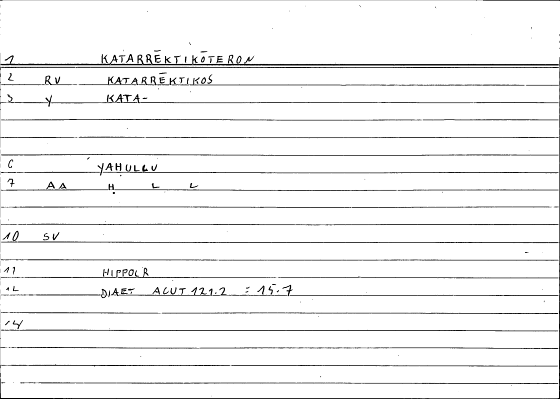 1 KATARRĒKTIKŌTERON
2 RV KATARRĒKTIKOS
3 Y KATA-
6 YAHULLU
7 AA Ḥ L L
10 SV
11 HIPPOCR
12 DIAET ACUT 121.2 = 15.7
14